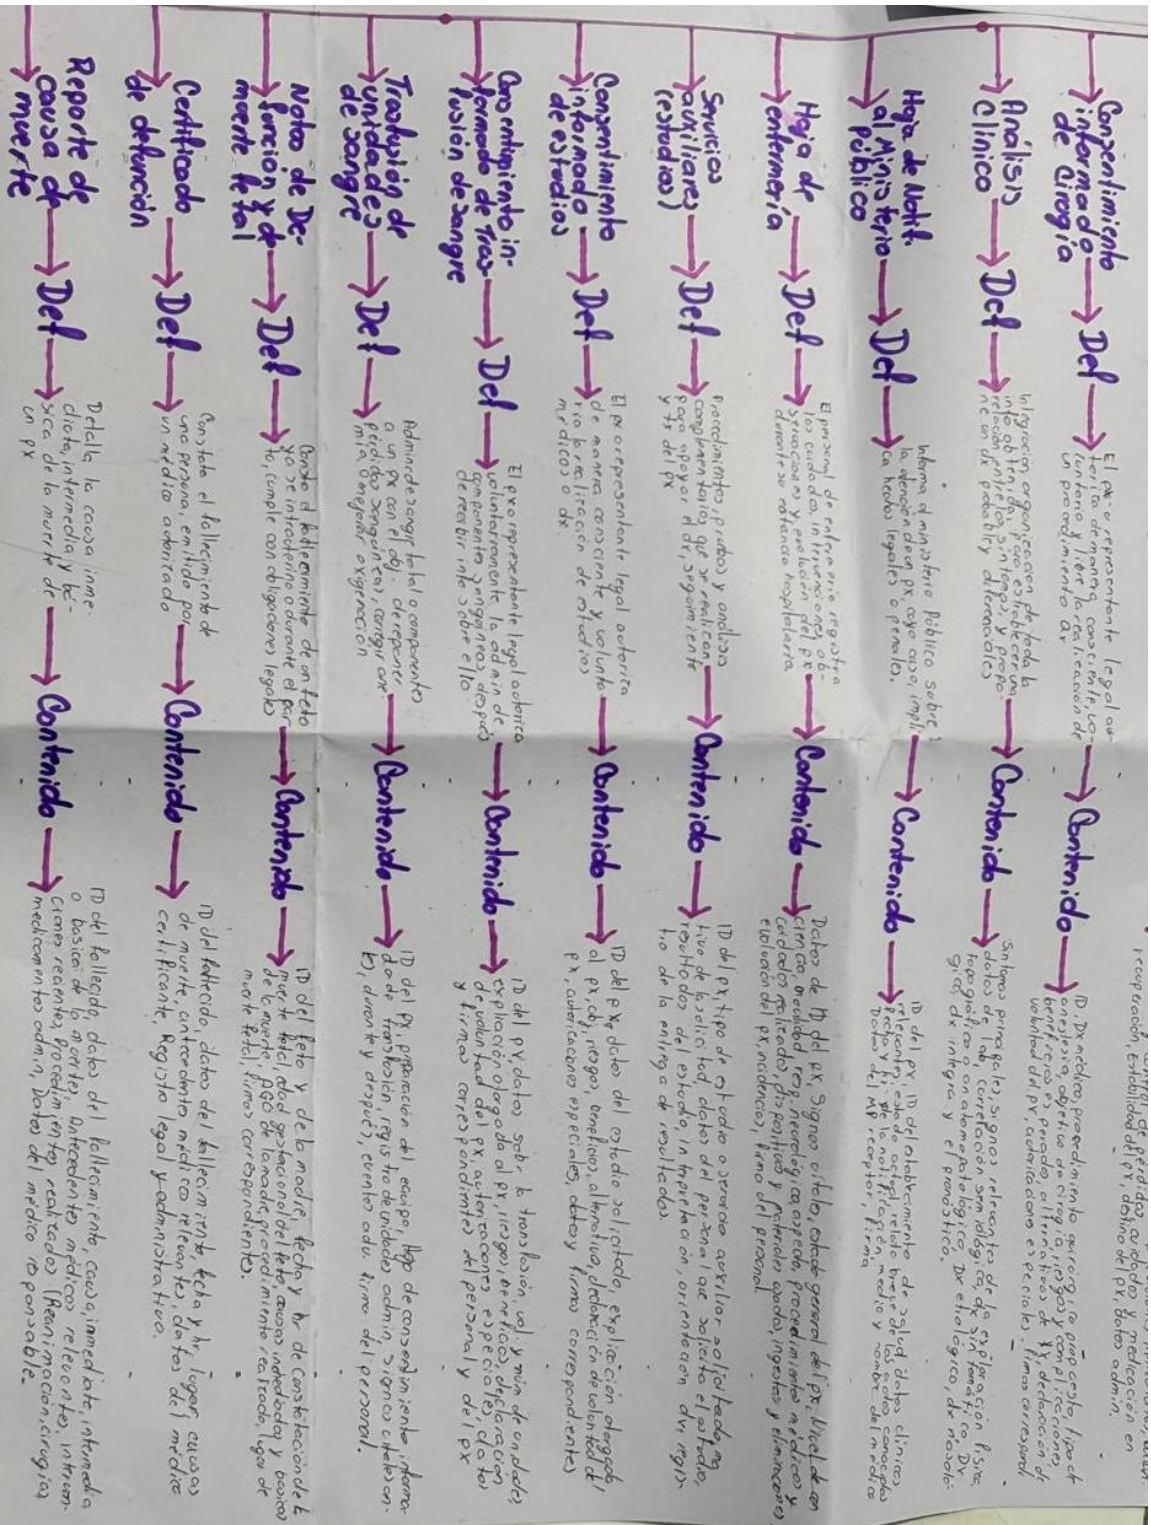 control de pérdidas, cuidados y medicación en
recuperación, Estabilidad del px, destino del px, Datos admin.
Consentimiento
informado
de Cirugía
Def
El px o representante legal au-
toriza de manera consciente, vo-
luntaria y libre la realización de
un procedimiento Qx
Contenido
ID, Dx médico, procedimiento quirúrgico propuesto, tipo de
anestesia, objetivo de cirugía, riesgos y complicaciones,
beneficios esperados, alternativas de tx, declaración de
voluntad del px autorizaciones especiales, firmas correspondi
Análisis
Clínico
Def
Integración organización de toda la
info obtenida, para establecer una
relación entre los síntomas, y propo-
ne un dx probable y diferenciales
Contenido
Síntomas principales, signos relevantes de la exploración física,
datos de lab, correlación semiológica, dx sintomático, Dx
topográfico o anatomopatológico, Dx etiológico, dx nosoló-
gico, dx integral y el pronóstico.
Hoja de Notif.
al Ministerio
público
Def
Informa al ministerio Público sobre
la atención de un px, cuyo caso, impli-
ca hechos legales o penales.
Contenido
ID del px, ID del establecimiento de salud datos clínicos
relevantes, estado actual, relato breve de los actos conocidos
fecha y hr de la notificación, medio y nombre del médico
Datos del MP receptor, firma
Hoja de
enfermería
Def
El personal de enfermería registra
los cuidados, intervenciones, ob-
servaciones y evolución del px
durante su estancia hospitalaria
Contenido
Datos de ID del px, Signos vitales, estado general del px. Nivel de con
ciencia, movilidad, resp, neurológico, aspecto, procedimientos médicos y
cuidados realizados, dispositivos y materiales usados, ingestas y eliminaciones
evolución del px, incidencias, firma del personal
Servicios
auxiliares
(estudios)
Def
Procedimientos, pruebas y análisis
complementarios que se realizan,
para apoyar el dx, seguimiento
y tx del px
Contenido
ID del px, tipo de estudio o servicio auxiliar solicitado, mo
tivo de la solicitud, datos del personal que solicita el estudio,
resultados del estudio, Interpretación, orientación dx, regis-
tro de la entrega de resultados.
Consentimiento
informado
de estudios
Def
El px o representante legal autoriza
de manera consciente y volunta
ria la realización de estudios
médicos o dx.
Contenido
ID del px, datos del estudio solicitado, explicación otorgada
al px, obj, riesgos, beneficios, alternativa, declaración de voluntad del
px, autorizaciones especiales, datos y firmas correspondientes
Consentimiento in-
formado de Tras-
fusión de sangre
Def
El px o representante legal autoriza
voluntariamente la admin de
componentes sanguíneos, después
de recibir info sobre ello
Contenido
ID del px, datos sobre la transfusión, vol. y núm de unidades,
explicación otorgada al px, riesgos, beneficios, declaración
de voluntad del px, autorizaciones especiales, datos
y firmas correspondientes del personal y del px
Trasfusión de
unidades
de sangre
Def
Admin de sangre total o componentes
a un px con el obj. de reponer
pérdidas sanguíneas, corregir ane
mia o mejorar oxigenación
Contenido
ID del px, preparación del equipo, Hoja de consentimiento informa-
do de transfusión, registro de unidades admin, signos vitales an-
tes, durante y después, eventos adv. firma del personal.
Notas de De-
función y de
muerte fetal
Def
Consta el fallecimiento de un feto
ya se intrauterino o durante el par
to, cumple con obligaciones legales
Contenido
ID del feto y de la madre, fecha y hr de constatación de la
muerte fetal, edad gestacional del feto, causas inmediatas y básicas
de la muerte, AGO de la madre, procedimiento realizado, lugar de
muerte fetal, firmas correspondientes.
Certificado
de defunción
Def
Constata el fallecimiento de
una persona, emitido por
un médico autorizado
Contenido
ID del fallecido, datos del fallecimiento, fecha y hr, lugar, causas
de muerte, antecedentes médicos relevantes, datos del médico
certificante, Registro legal y administrativo.
Reporte de
causa de
muerte
Def
Detalla la causa inme-
diata, intermedia y bá-
sica de la muerte de
un px
Contenido
ID del fallecido, datos del fallecimiento, causa, inmediata, intermedia
o básica de la muerte, Antecedentes médicos relevantes, interven-
ciones recientes, procedimientos realizados (Reanimación, cirugías)
medicamentos admin, Datos del médico responsable.